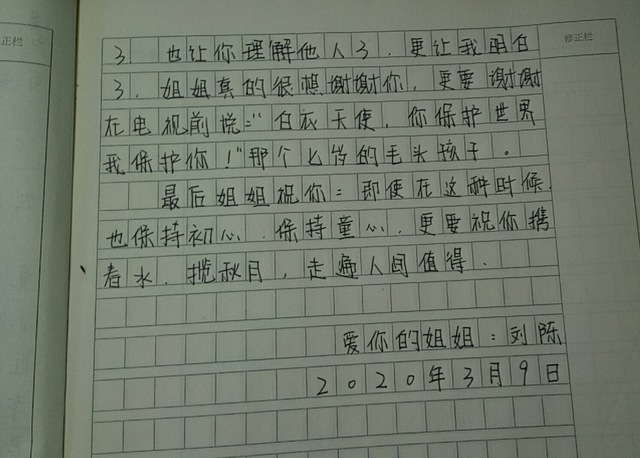 正栏
修正栏
了也让你理解他人了.更让我明白
了.姐姐真的很想谢谢你,更要谢谢
在电视前说:“白衣天使,你保护世界
我保护你!”那个七岁的毛头孩子。
最后姐姐祝你:即使在这种时候.
也保持初心.保持童心.更要祝你携
春水.揽秋月,走遍人间值得.
爱你的姐姐:刘陈
2020年3月9日